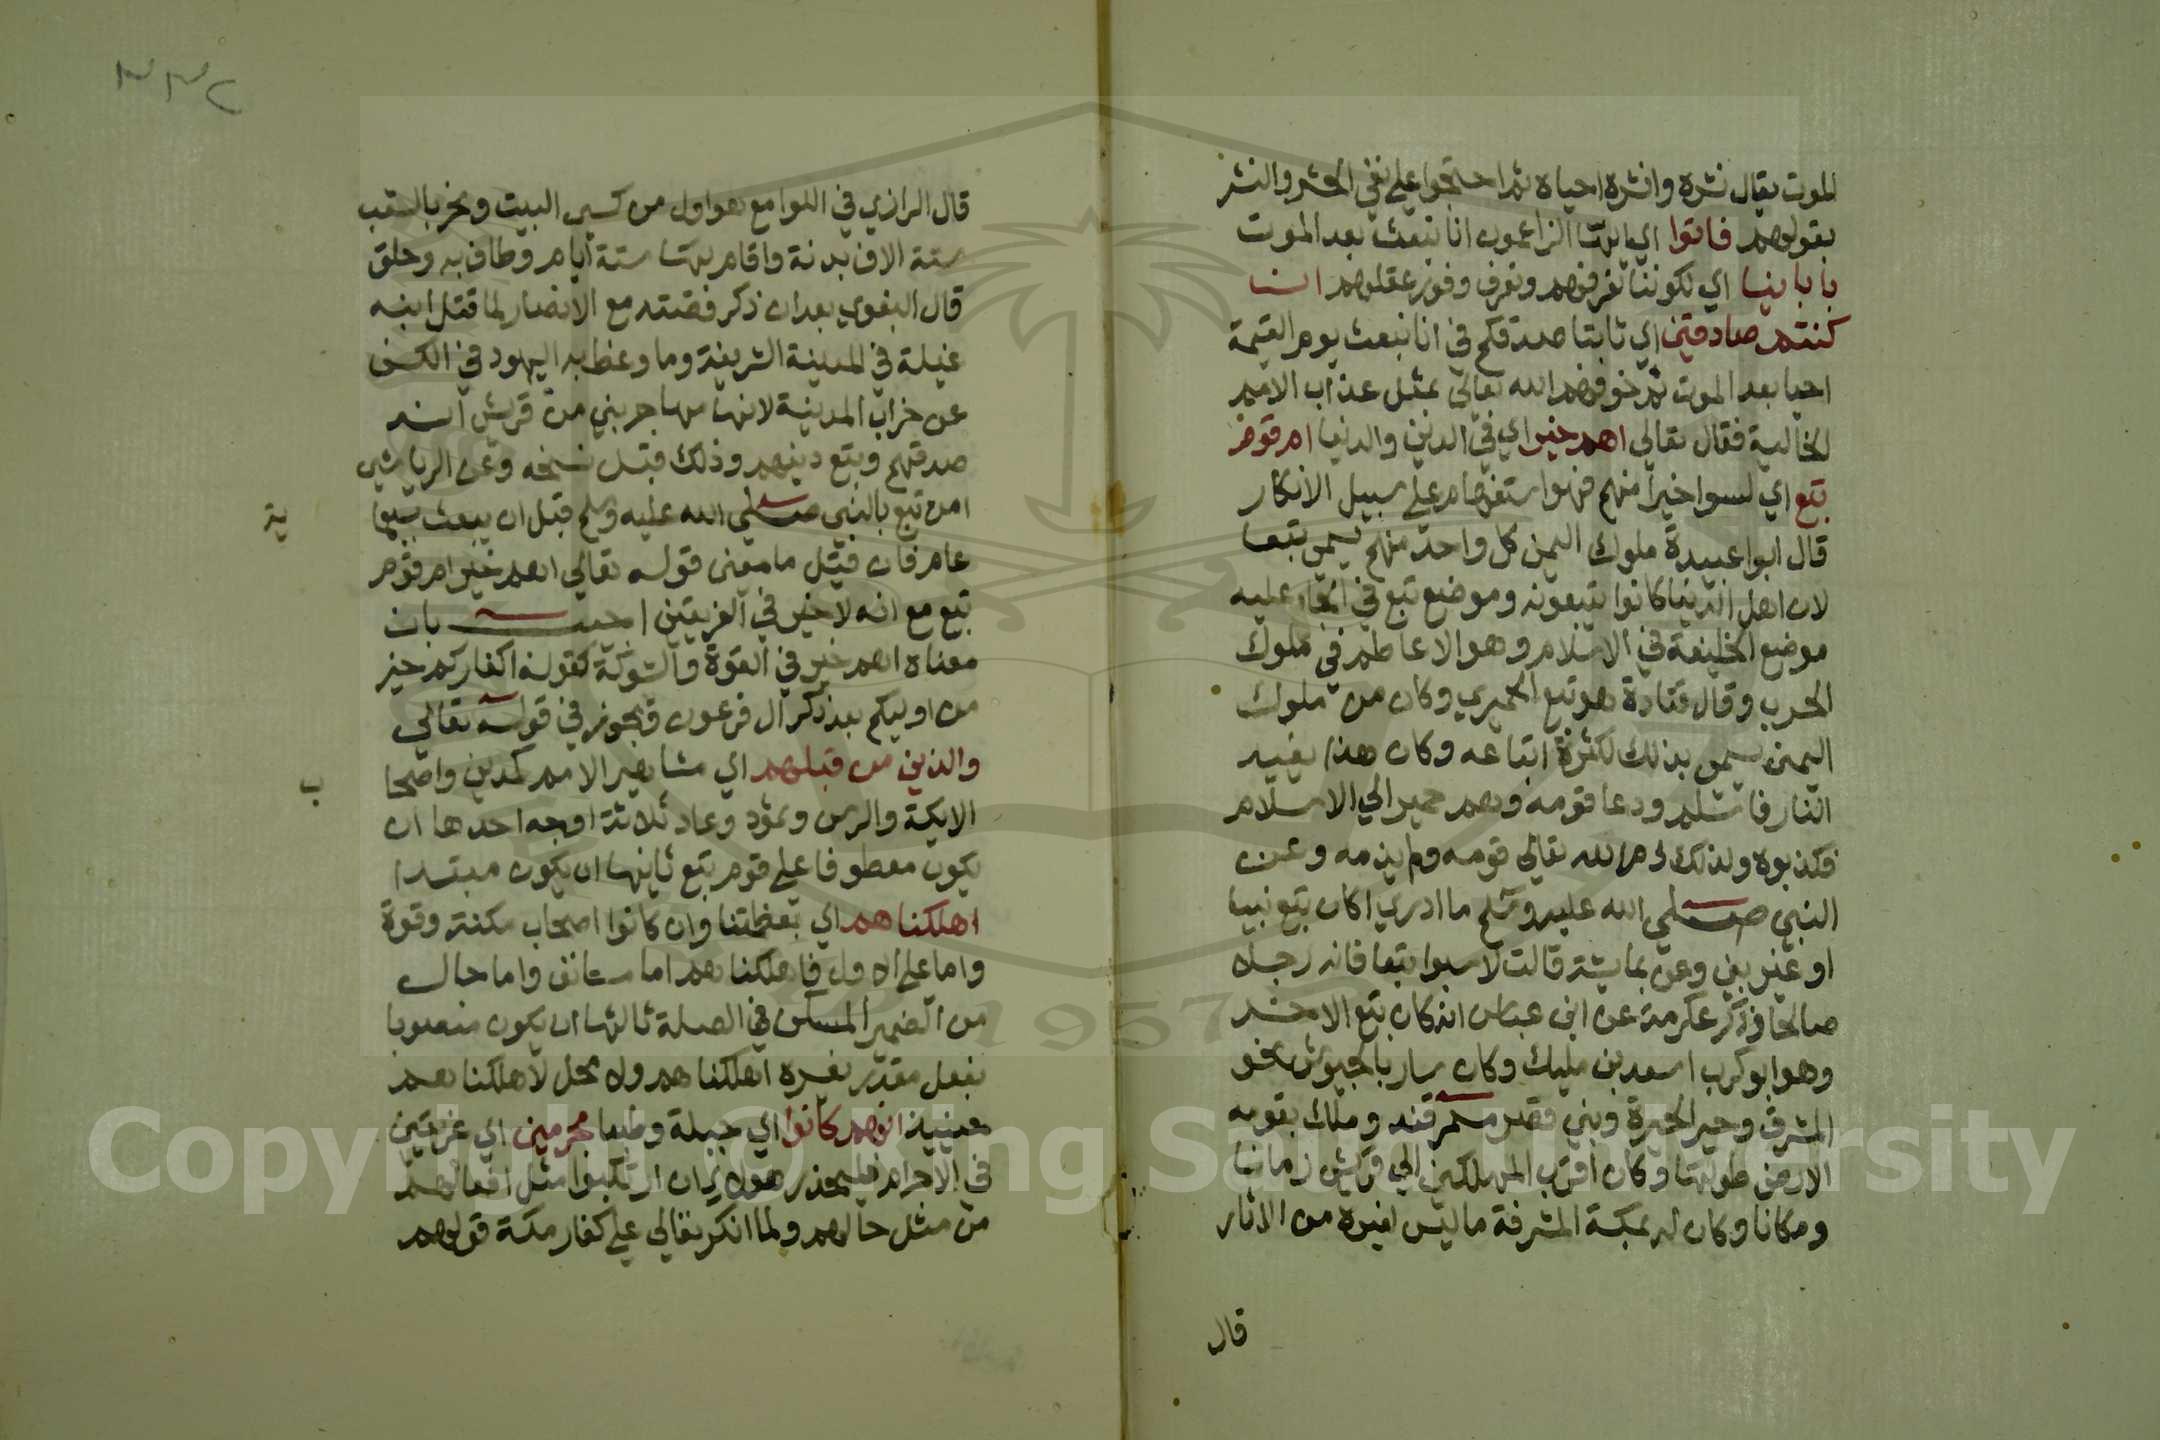 الموت يقال نشره وانشره احياه ثم احتجوا على نفي الحشر والنشر
بقولهم فاتوا اي ايها الزاعمون انا نبعث بعد الموت
بابائنا اي لكوننا نعرفهم ونعرف وفور عقلهم ان
كنتم صادقين اي ثابتا صدقكم في انا نبعث يوم القيمة
احيا بعد الموت ثم خوفهم الله تعالى بمثل عذاب الامم
الخالية فقال تعالى اهم خير اي في الدين والدنيا ام قوم
تبع اي ليسوا خيرا منهم فهو استفهام على سبيل الانكار
قال ابوا عبيدة ملوك اليمن كل واحد منهم يسمى تبعا
لان اهل الدنيا كانوا يتبعونه وموضع تبع في الجاهلية
موضع الخليفة في الاسلام وهو الاعاظم في ملوك
العرب وقال قتادة هو تبع الحميري وكان من ملوك
اليمن يسمى بذلك لكثرة اتباعه وكان هذا يعبد
النار فاسلم ودعا قومه وهم حمير الى الاسلام
فكذبوه ولذلك ذم الله تعالى قومه ولم يذمه وعن
النبي صلى الله عليه وسلم ما ادري اكان تبع نبيا
او غير نبي وعن عايشة قالت لا تسبوا تبعا فانه رجلا
صالحا وذكر عكرمة عن ابن عباس انه كان تبع الاخر
وهو ابو كرب اسعد بن مليك وكان سار بالجيوش نحو
المشرق وحير الحيرة وبنى قصر سمرقند وملك بقومه
الارض طولها وكان اقرب المهلكين الى قريش زمانا
ومكانا وكان له بمكة المشرفة ما ليس لغيره من الاثار
قال
٣٣٢
قال الرازي في اللوامع هو اول من كسى البيت ونحر بالشعب
ستة الاف بدنة واقام بها ستة ايام وطاف به وحلق
قال البغوي بعد ان ذكر قصته مع الانصار لما قتل ابنه
غيلة في المدينة الشريفة وما وعظ به اليهود في الكف
عن خراب المدينة لانها مهاجر نبي من قريش انه
صدقهم وتبع دينهم وذلك قبل نسخه وعن الرياشي
امن تبع بالنبي صلى الله عليه وسلم قبل ان يبعث بسبعما
ية
عام فان قيل ما معنى قوله تعالى اهم خير ام قوم
تبع مع انه لا خير في الفريقين اجيب بان
معناه اهم خير في القوة والشوكة كقوله اكفاركم خير
من اوليكم بعد ذكر ال فرعون ويجوز في قوله تعالى
والذين من قبلهم اي مشاهير الامم كمدين واصحا
ب
الايكة والرس وثمود وعاد ثلاثة اوجه احدها ان
يكون معطوفا على قوم تبع ثانيها ان يكون مبتدا
اهلكناهم اي بعظمتنا وان كانوا اصحاب مكنة وقوة
واما على الاول فاهلكناهم اما مستانف واما حال
من الضمير المستكن في الصلة ثالثها ان يكون منصوبا
بفعل مقدر يفسره اهلكناهم ولا محل لاهلكناهم
حينيذ انهم كانوا اي جبلة وطبعا مجرمين اي عريقين
في الاجرام فليحذر هولاء ان ارتكبوا مثل افعالهم
من مثل حالهم ولما انكر تعالى على كفار مكة قولهم
Copyright © King Saud University
1957